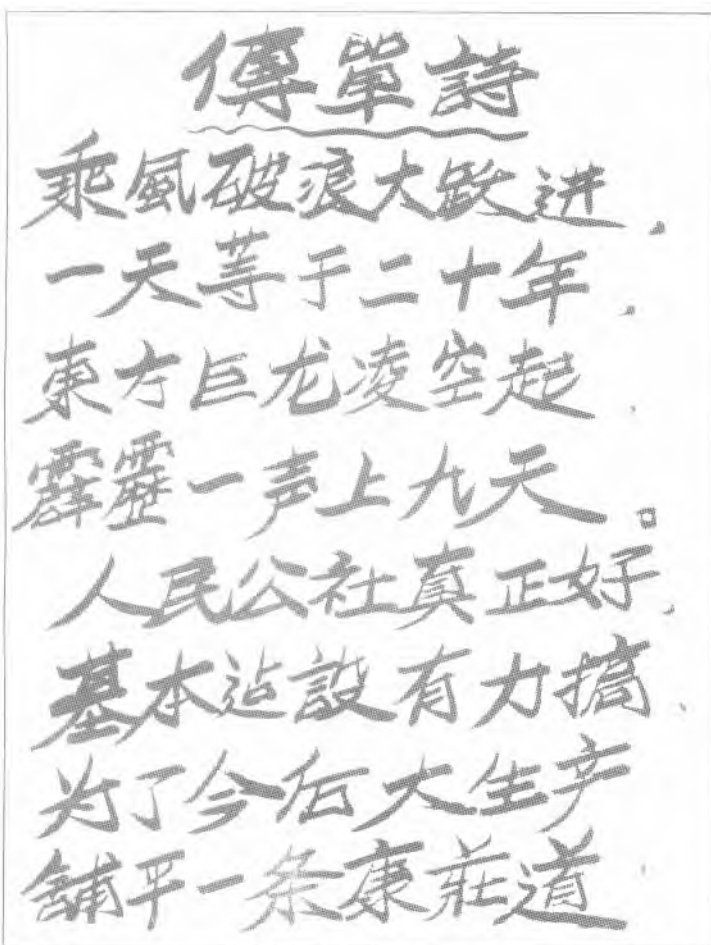 傳單詩
乘風破浪大跃进，
一天等于二十年，
東方巨龙凌空起，
霹靂一声上九天。
人民公社真正好，
基本迠設有力搞，
为了今后大生产
舖平一条康莊道